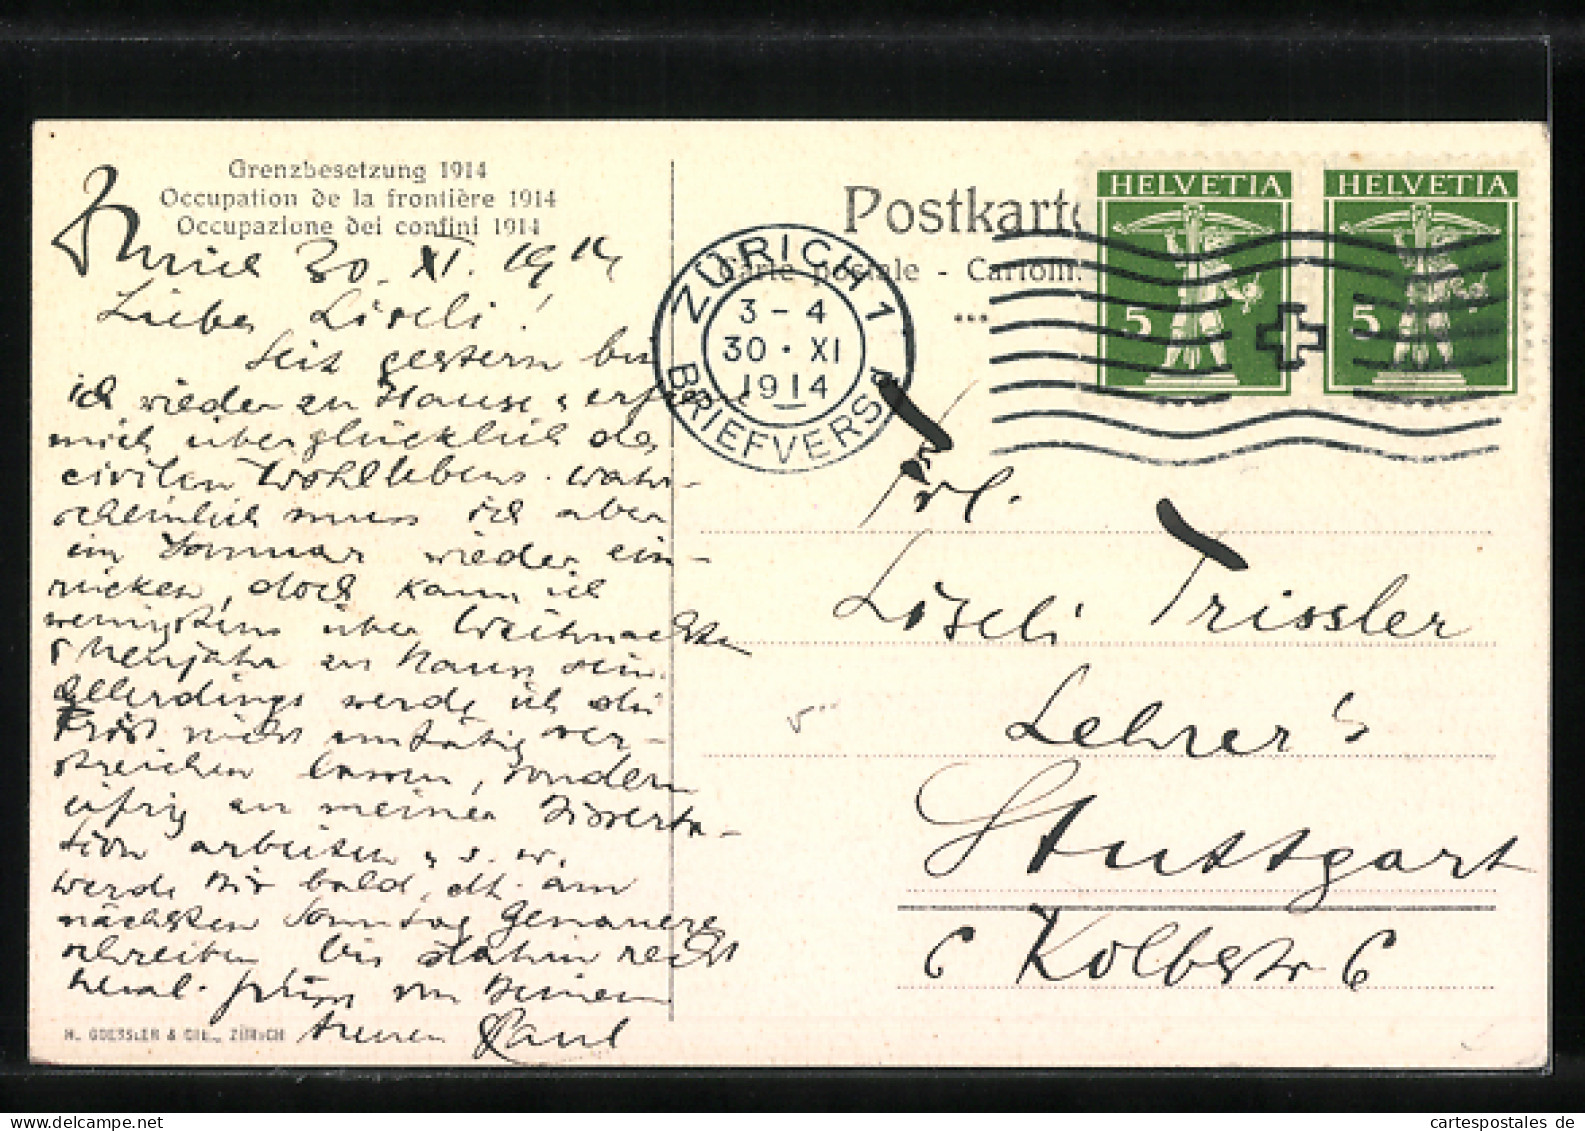 Grenzbesetzung 1914
Occupation de la frontière 1914
Occupazione dei confini 1914
Zürich 30. XI. 1914
Liebes Liseli!
Seit gestern bin
ich wieder zu Hause &
mich überglücklich des
civilen Wohllebens. Wahr-
scheinlich muss ich aber
im Januar wieder ein-
rücken, doch kann ich
wenigstens über Weihnachten
& Neujahr zu Hause sein.
Allerdings werde ich die
Frist nicht untätig ver-
streichen lassen, sondern
eifrig an meiner Disserta-
tion arbeiten u. s. w.
Werde Dir bald, am
nächsten Sonntag Genaueres
schreiben bis dahin recht
von Deinem
treuen Paul
H. GOESSLER & CIE., ZÜRICH
Postkarte
Carte postale - Cartolin
...
ZÜRICH 1
3-4
30·XI
1914
BRIEFVERS
HELVETIA
5
HELVETIA
5
Frl.
Liseli Trissler
Lehrer's
Stuttgart
6 Kolbstr 6
cartespostales de